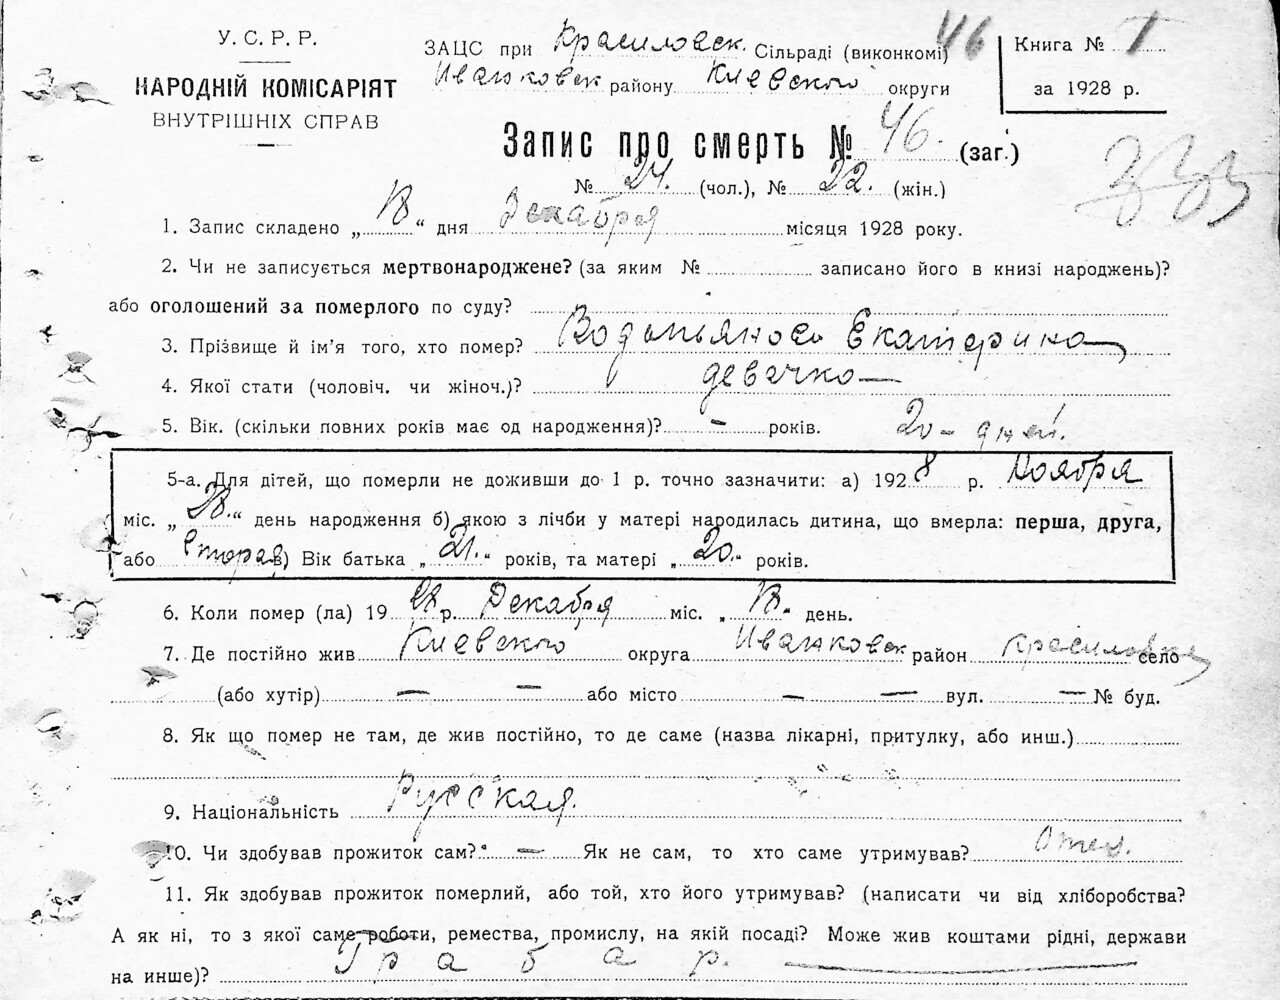 У. С. Р. Р.
НАРОДНІЙ КОМІСАРІЯТ
ВНУТРІШНІХ СПРАВ
ЗАЦС при Красиловск. Сільраді (виконкомі)
46
Иванковск району Киевского округи
Книга № 1
за 1928 р.
Запис про смерть № 46. (заг.)
№ 24. (чол.), № 22. (жін.)
333
1. Запис складено „ 18 “ дня Декабря місяця 1928 року.
2. Чи не записується мертвонароджене? (за яким № записано його в книзі народжень)?
або оголошений за померлого по суду?
3. Прізвище й ім'я того, хто помер? Водопьянова Екатерина
4. Якої стати (чоловіч. чи жіноч.)? девачка —
5. Вік. (скільки повних років має од народження)? – років. 20 – дней.
5-а. Для дітей, що померли не доживши до 1 р. точно зазначити: а) 1928 р. Ноября
міс. „ 28. “ день народження б) якою з лічби у матері народилась дитина, що вмерла: перша, друга,
або вторая в) Вік батька „ 21. “ років, та матері „ 20. “ років.
6. Коли помер (ла) 19 28 р. Декабря міс. „ 18 “ день.
7. Де постійно жив Киевского округа Иванковск район Красиловка село
(або хутір) — — або місто — — вул. — № буд.
8. Як що помер не там, де жив постійно, то де саме (назва лікарні, притулку, або инш.)
9. Національність Русская.
10. Чи здобував прожиток сам? — Як не сам, то хто саме утримував? Отец.
11. Як здобував прожиток померлий, або той, хто його утримував? (написати чи від хліборобства?
А як ні, то з якої саме роботи, ремества, промислу, на якій посаді? Може жив коштами рідні, держави
на инше)? Грабар. —